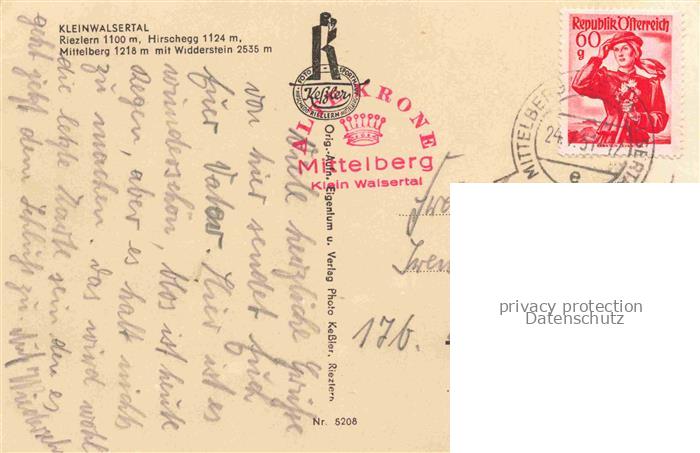 KLEINWALSERTAL
Riezlern 1100 m, Hirschegg 1124 m,
Mittelberg 1218 m mit Widderstein 2535 m
Keßler
Orig.-Aufn. Eigentum u. Verlag Photo Keßler, Riezlern
Nr. 5208
ALPENKRONE
Mittelberg
Klein Walsertal
Republik Österreich
60
g
MITTELBERG
e
Viele herzliche Grüße
von hier sendet Euch
Euer Vater. Hier ist es
wunderschön, blos ist heute
Regen, aber es hält nichts
zu machen. das wird wohl
die letzte Karte sein, den es
geht jetzt dem Schluß zu. Auf Wiedersehn
17b.
privacy protection
Datenschutz